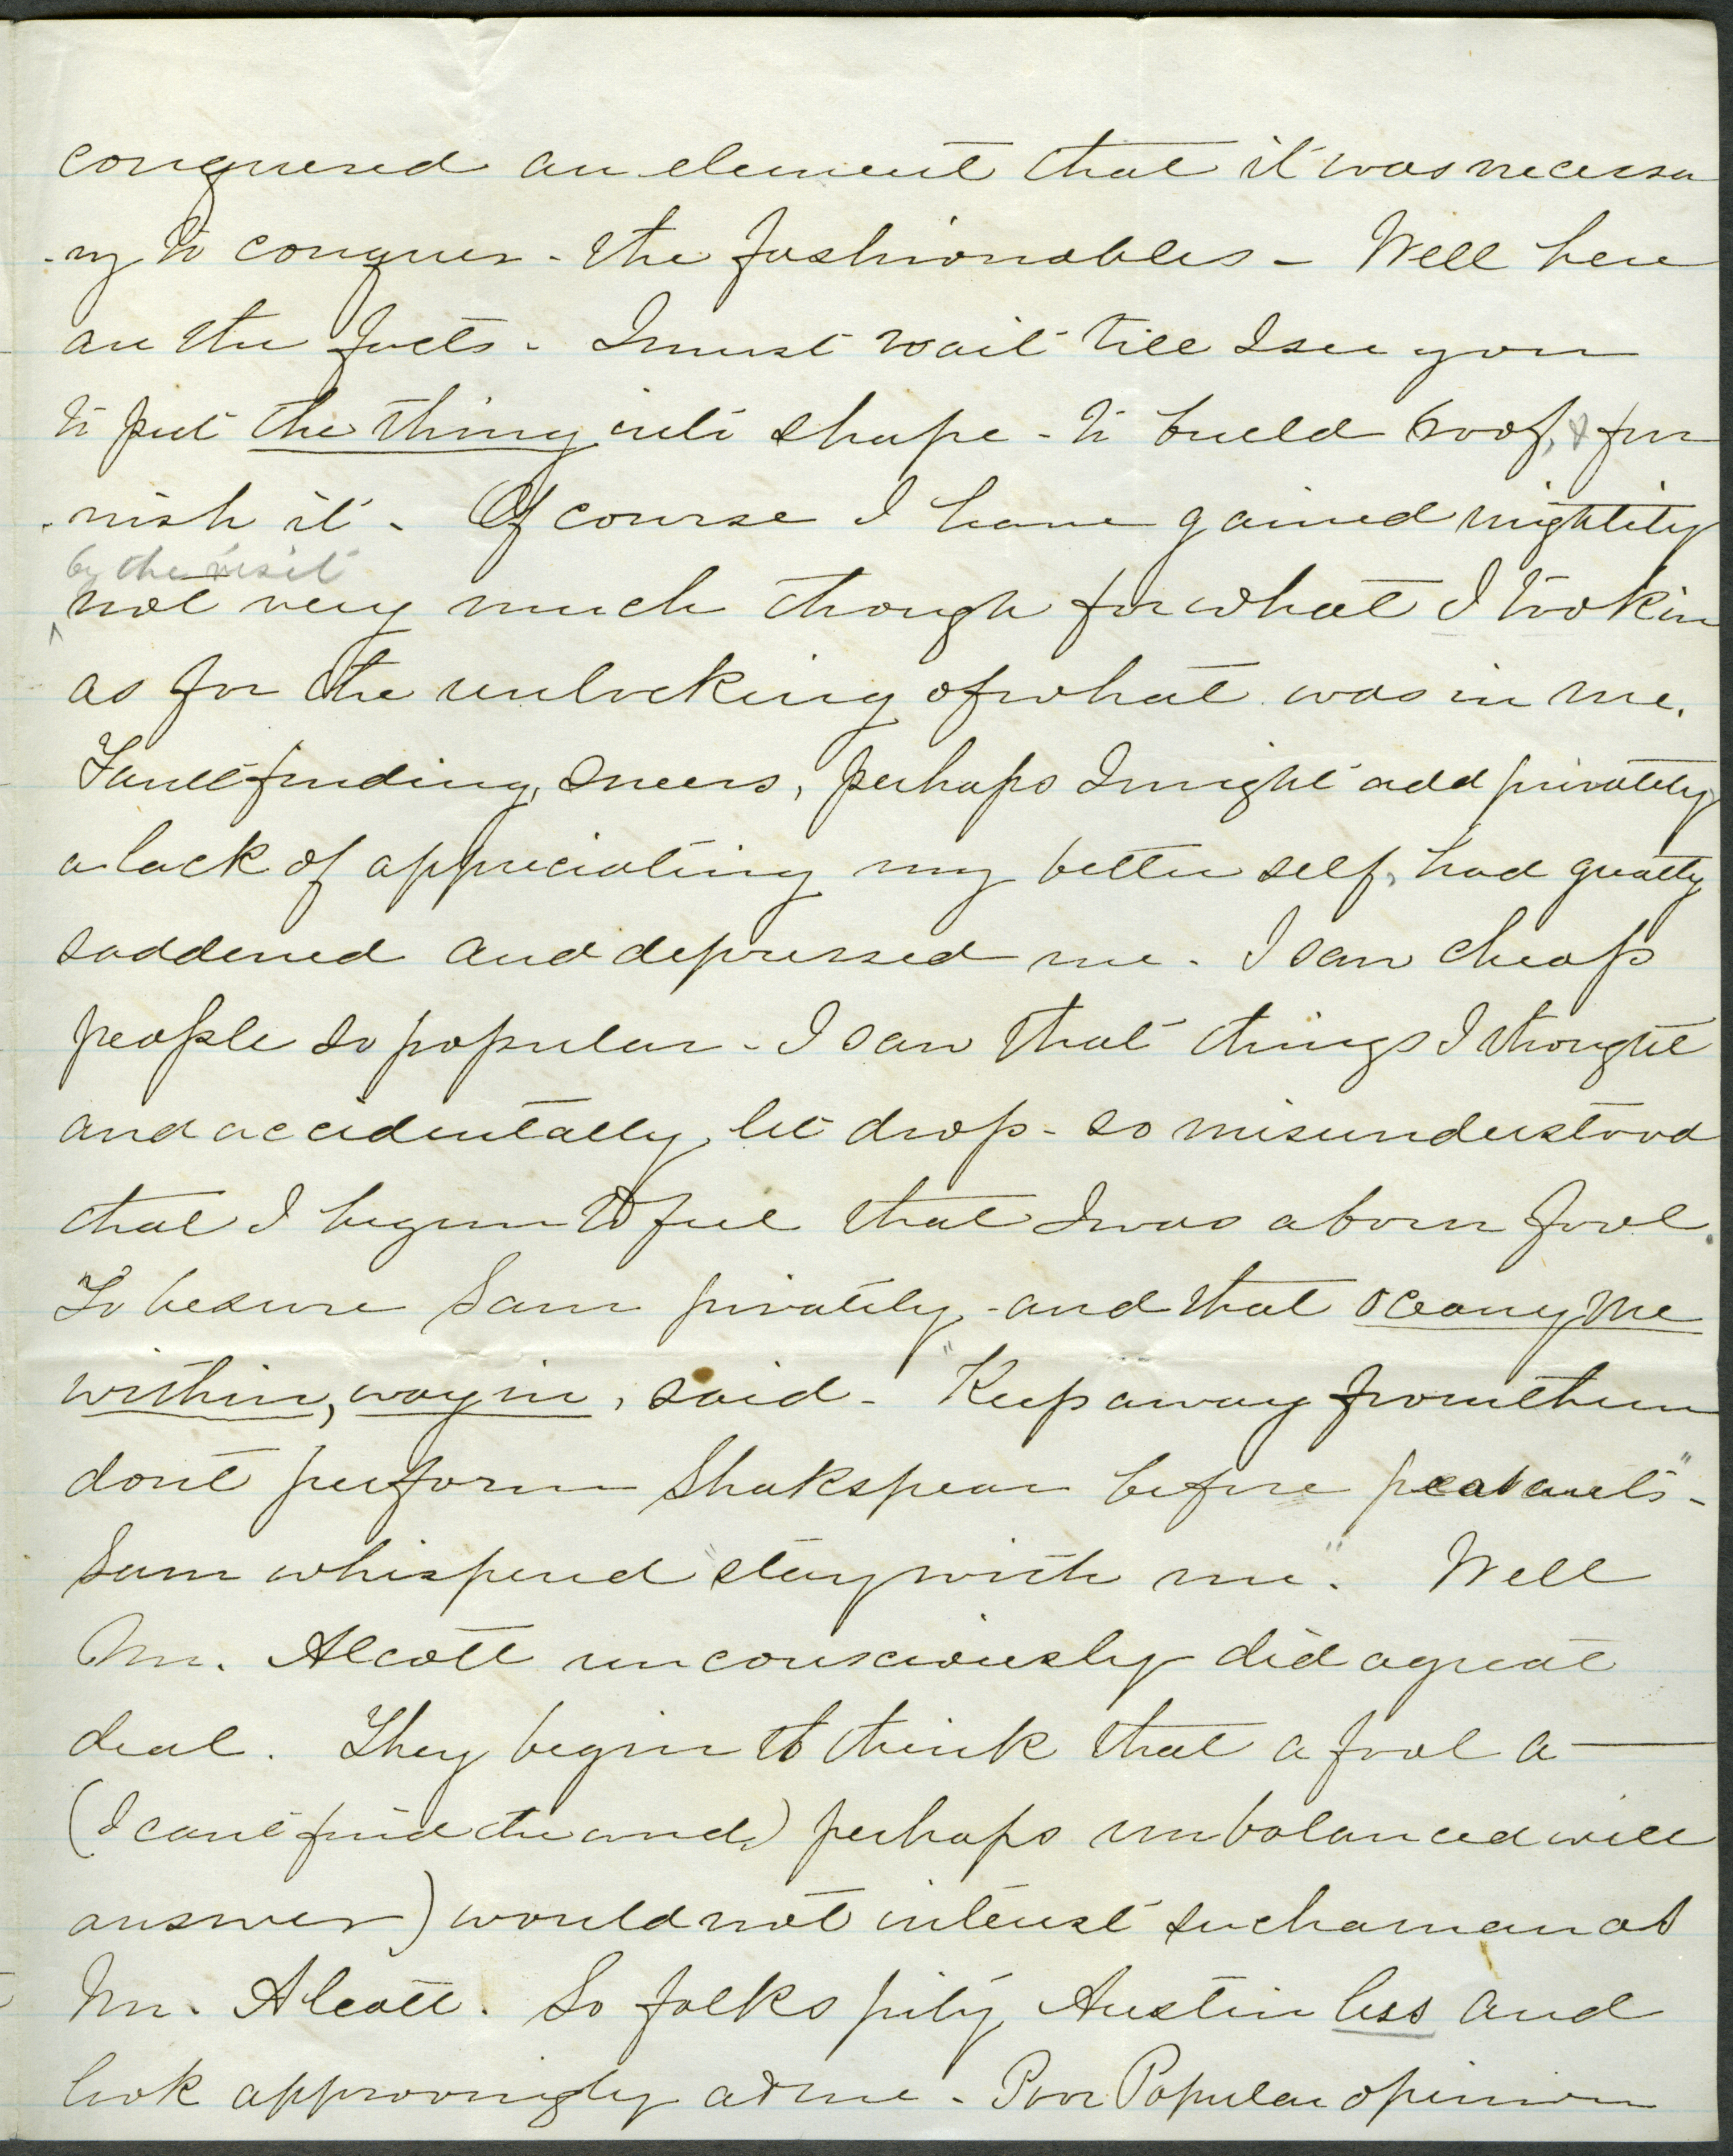 conquered an element that it was necessa
-ry to conquer - the fashionables - Well here
are the facts - I must wait till I see you
to put the thing into shape - to build roof, & fur
-nish it - Of course I have gained mightily
by the visit
^ not very much though for what I took in
as for the unlocking of what was in me.
Faultfinding, sneers, perhaps I might add privately
a lack of appreciating my better self, had greatly
saddened and depressed me. I saw cheap
people so popular - I saw that things I thought
and accidentally let drop - so misunderstood
that I begun to feel that I was a born fool.
To be sure Sam privately - and that oceany me
within, way in, said - "Keep away from them
dont perform Shakspear before peasants" -
Sam whispered "stay with me." Well
Mr. Alcott unconsciously did a great
deal. They begin to think that a fool a —
(I cant find the word) perhaps unbalanced will
answer) would not interest such a man as
Mr. Alcott. So folks pity Austin less and
look approvingly at me - Poor Popular opinion